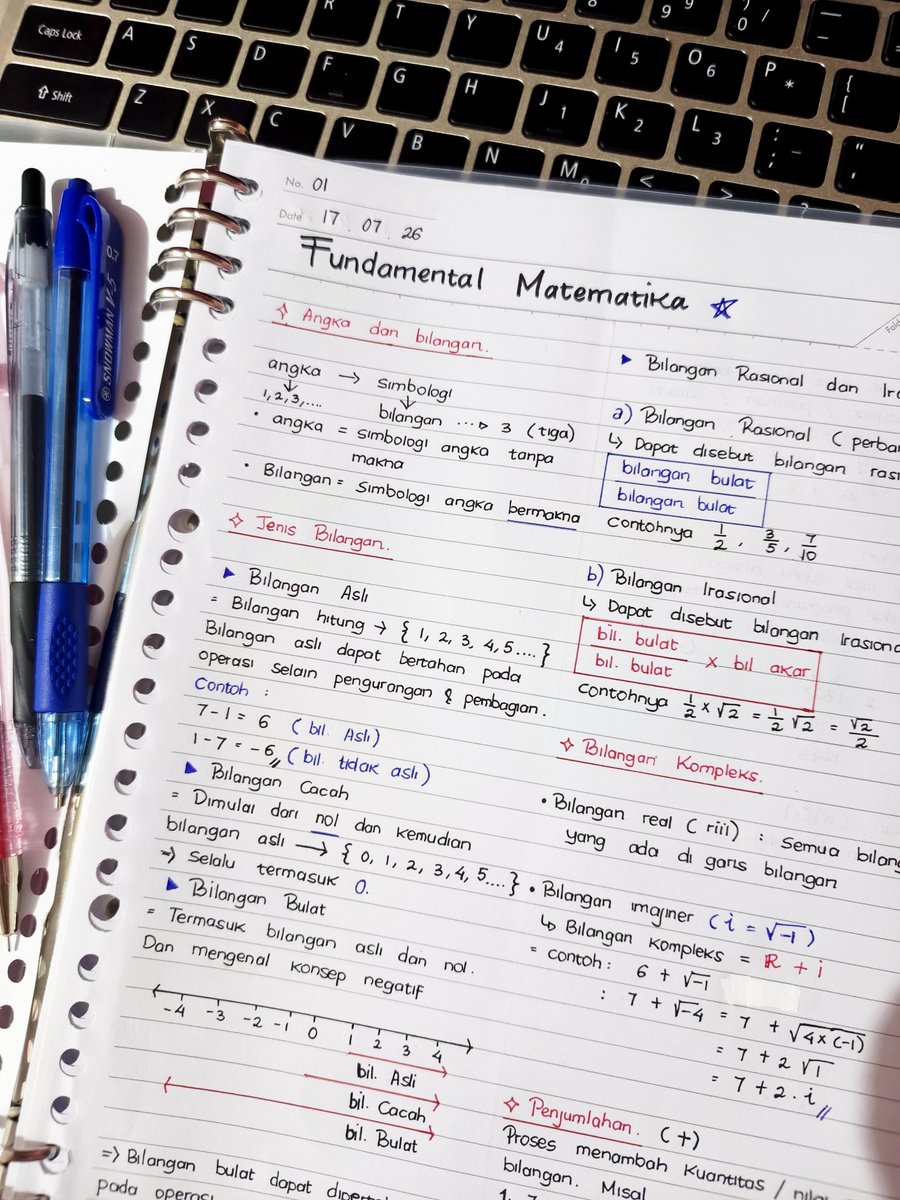 Caps Lock
A
S
D
F
G
H
J 1
K 2
L 3
R
T
Y
U 4
I 5
O 6
P *
Shift
Z
X
C
V
B
N
M
SNOWMAN V5 0.7
No. 01
Date 17 . 07 . 26
Fundamental Matematika
Angka dan bilangan.
angka → simbologi
1, 2, 3, ....
bilangan ... 3 (tiga)
• angka = simbologi angka tanpa
makna
• Bilangan = Simbologi angka bermakna
Jenis Bilangan.
▶ Bilangan Asli
= Bilangan hitung → { 1, 2, 3, 4, 5 .... }
Bilangan asli dapat bertahan pada
operasi selain pengurangan & pembagian.
Contoh :
7 - 1 = 6 (bil. Asli)
1 - 7 = -6 (bil. tidak asli)
▶ Bilangan Cacah
= Dimulai dari nol dan kemudian
bilangan asli → { 0, 1, 2, 3, 4, 5 .... }
=> Selalu termasuk 0.
▶ Bilangan Bulat
= Termasuk bilangan asli dan nol.
Dan mengenal konsep negatif
-4 -3 -2 -1 0 1 2 3 4
bil. Asli
bil. Cacah
bil. Bulat
=> Bilangan bulat dapat
pada operasi
▶ Bilangan Rasional dan
a) Bilangan Rasional (
↳ Dapat disebut bilangan
bilangan bulat
bilangan bulat
Contohnya 1/2 , 3/5 , 7/10
b) Bilangan Irasional
↳ Dapat disebut bilangan
bil. bulat
bil. bulat × bil akar
Contohnya 1/2 × √2 = 1/2 √2 = √2/2
Bilangan Kompleks.
• Bilangan real (riil) : Semua
yang ada di garis bilangan
• Bilangan imajiner (i = √-1)
↳ Bilangan kompleks = R + i
= contoh : 6 + √-1
: 7 + √-4 = 7 + √4×(-1)
= 7 + 2 √1
= 7 + 2 . i
Penjumlahan. (+)
Proses menambah kuantitas /
bilangan. Misal